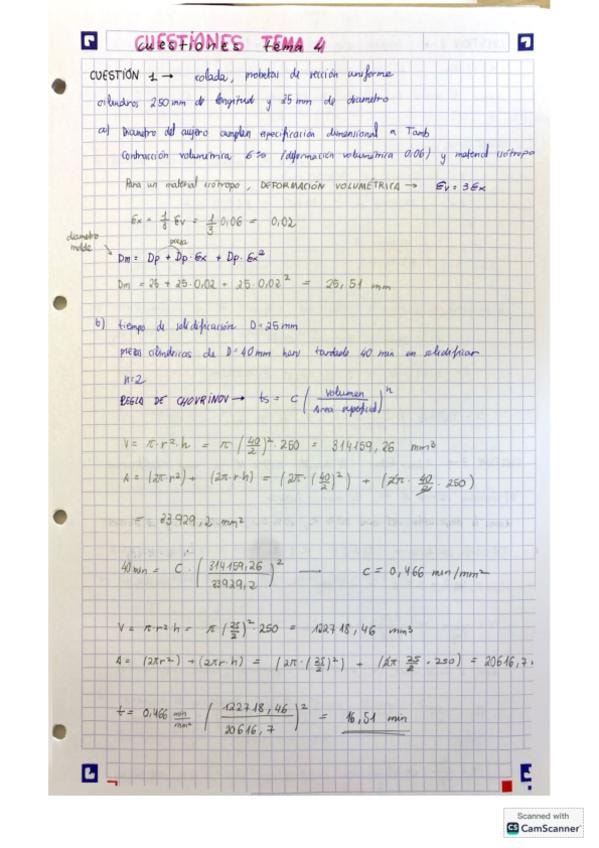 CUESTIONES TEMA 4
CUESTIÓN 1 → colada, probetas de sección uniforme
cilindros 250 mm de longitud y 25 mm de diametro
a) Diametro del agujero cumplan especificación dimensional a Tamb
Contracción volumétrica 6% (deformación volumétrica 0.06) y material isótropo
Para un material isótropo, DEFORMACIÓN VOLUMÉTRICA → Ev = 3Ex
Ex = 1/3 Ev = 1/3 0,06 = 0,02
diametro molde
pieza
Dm = Dp + Dp·Ex + Dp·Ex²
Dm = 25 + 25·0,02 + 25·0,02² = 25,51 mm
b) tiempo de solidificación D=25mm
piezas cilíndricas de D=40mm han tardado 40 min en solidificar
n=2
REGLA DE CHOVRINOV → ts = C (volumen / Area superficial)ⁿ
V = π·r²·h = π (40/2)²·250 = 314159,26 mm³
A = (2π·r²) + (2π·r·h) = (2π·(40/2)²) + (2π·40/2·250)
= 33929,2 mm²
40 min = C·(314159,26 / 33929,2)² — C = 0,466 min/mm²
V = π r² h = π (25/2)²·250 = 122718,46 mm³
A = (2πr²) + (2πr·h) = (2π·(25/2)²) + (2π 25/2·250) = 20616,7
t = 0,466 min/mm² (122718,46 / 20616,7)² = 16,51 min
Scanned with
CS CamScanner